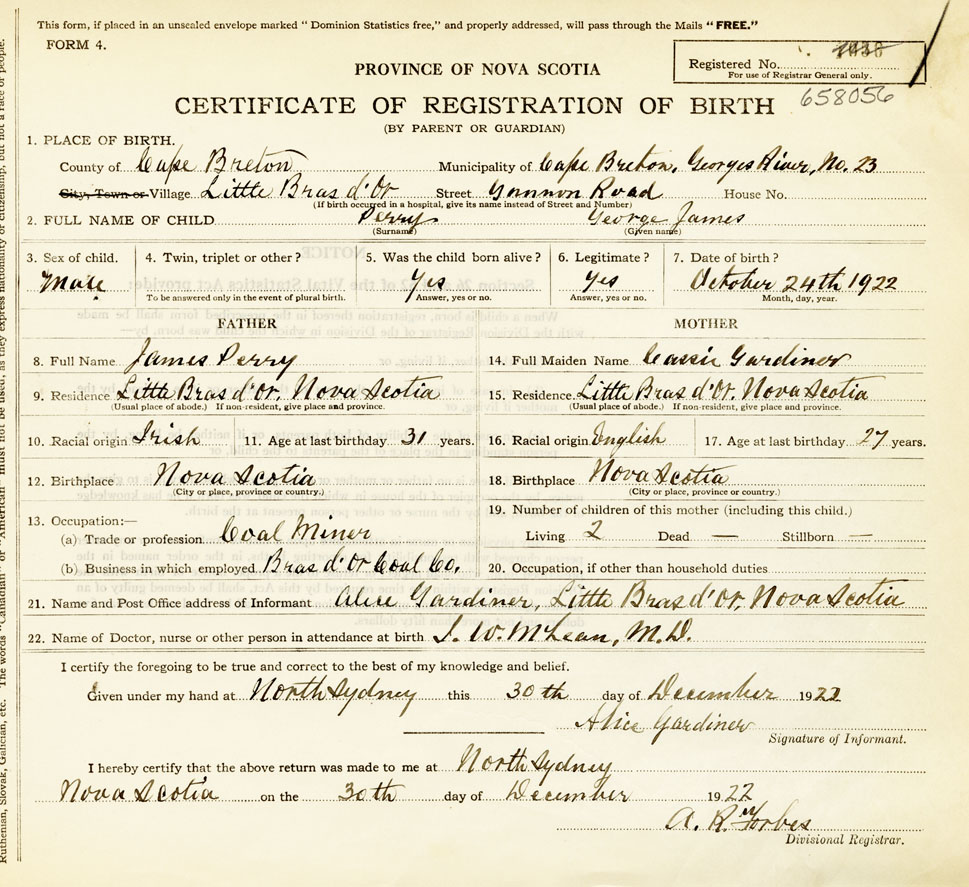 This form, if placed in an unsealed envelope marked "Dominion Statistics free," and properly addressed, will pass through the Mails "FREE."
FORM 4.
Registered No.
For use of Registrar General only.
PROVINCE OF NOVA SCOTIA
658056
CERTIFICATE OF REGISTRATION OF BIRTH
(BY PARENT OR GUARDIAN)
1. PLACE OF BIRTH.
County of Cape Breton Municipality of Cape Breton, Georges River, No. 23
City, Town or Village Little Bras d'Or Street Gannon Road House No.
(If birth occurred in a hospital, give its name instead of Street and Number)
2. FULL NAME OF CHILD Perry George James
(Surname) (Given name)
3. Sex of child. 4. Twin, triplet or other? 5. Was the child born alive? 6. Legitimate? 7. Date of birth?
Male Yes Yes October 24th 1922
To be answered only in the event of plural birth. Answer, yes or no. Answer, yes or no. Month, day, year.
FATHER MOTHER
8. Full Name James Perry 14. Full Maiden Name Cassie Gardiner
9. Residence Little Bras d'Or, Nova Scotia 15. Residence. Little Bras d'Or, Nova Scotia
(Usual place of abode.) If non-resident, give place and province. (Usual place of abode.) If non-resident, give place and province.
10. Racial origin Irish 11. Age at last birthday 31 years. 16. Racial origin English 17. Age at last birthday 27 years.
12. Birthplace Nova Scotia 18. Birthplace Nova Scotia
(City or place, province or country.) (City or place, province or country.)
13. Occupation:— 19. Number of children of this mother (including this child.)
(a) Trade or profession Coal Miner Living 2 Dead — Stillborn —
(b) Business in which employed Bras d'Or Coal Co. 20. Occupation, if other than household duties
21. Name and Post Office address of Informant Alice Gardiner, Little Bras d'Or, Nova Scotia
22. Name of Doctor, nurse or other person in attendance at birth W. McLean, M.D.
I certify the foregoing to be true and correct to the best of my knowledge and belief.
Given under my hand at North Sydney this 30th day of December 1922
Alice Gardiner
Signature of Informant.
I hereby certify that the above return was made to me at North Sydney
Nova Scotia on the 30th day of December 1922
A. R. Forbes
Divisional Registrar.
Ruthenian, Slovak, Galician, etc. The words "Canadian" or "American" must not be used, as they express nationality or citizenship, but not a race or people.